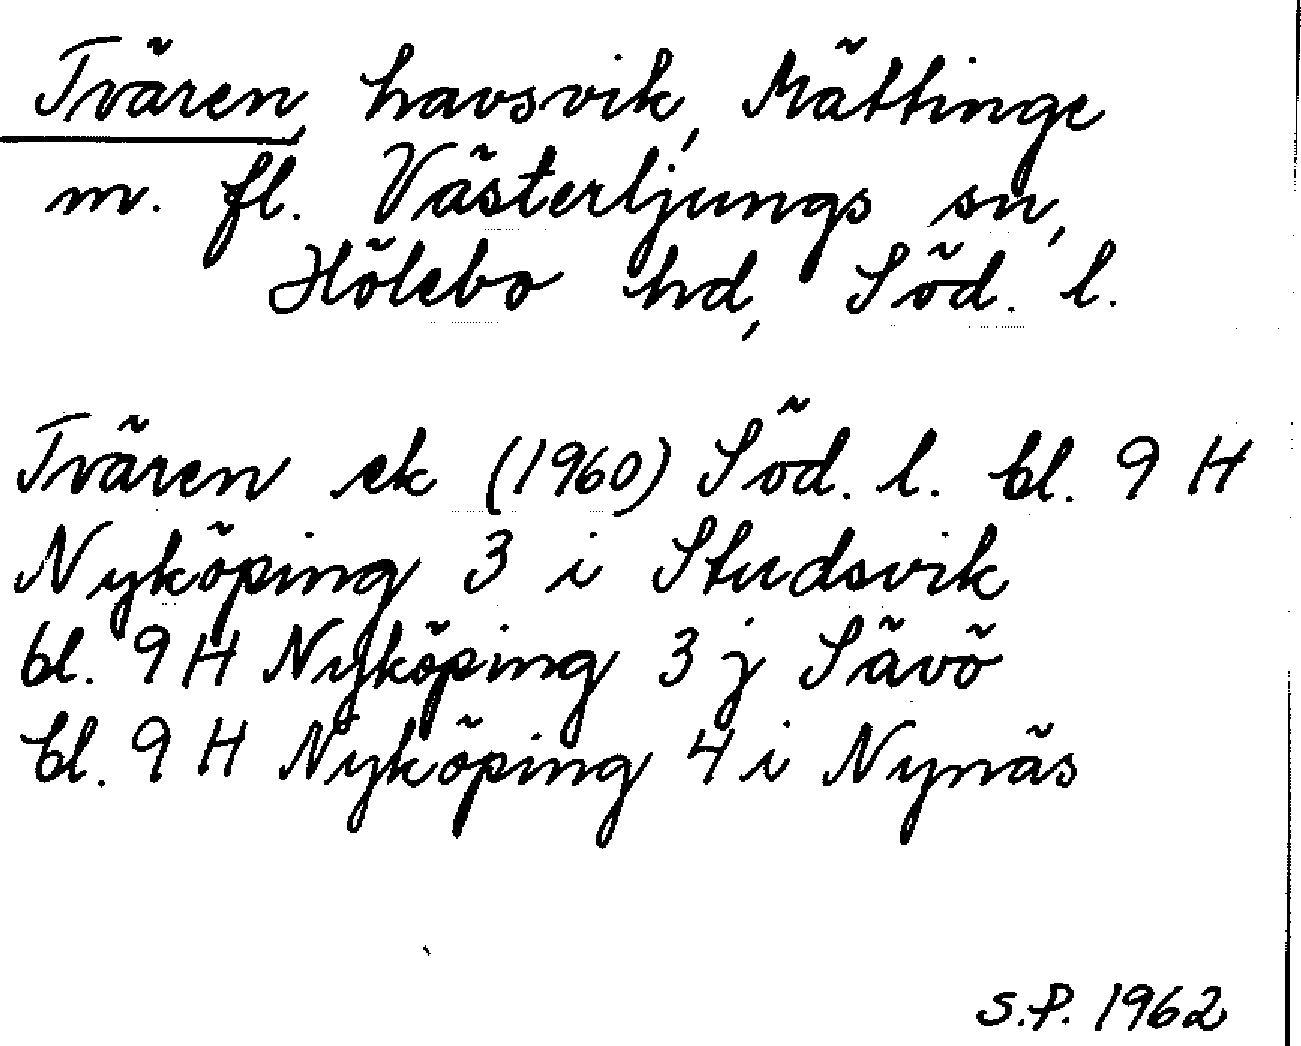 Tvären, havsvik, Mättinge
m. fl. Västerljungs sn,
Hölebo hd, Söd. l.
Tvären ek (1960) Söd. l. bl. 9 H
Nyköping 3 i Studsvik
bl. 9 H Nyköping 3 j Sävö
bl. 9 H Nyköping 4 i Nynäs
S.P. 1962